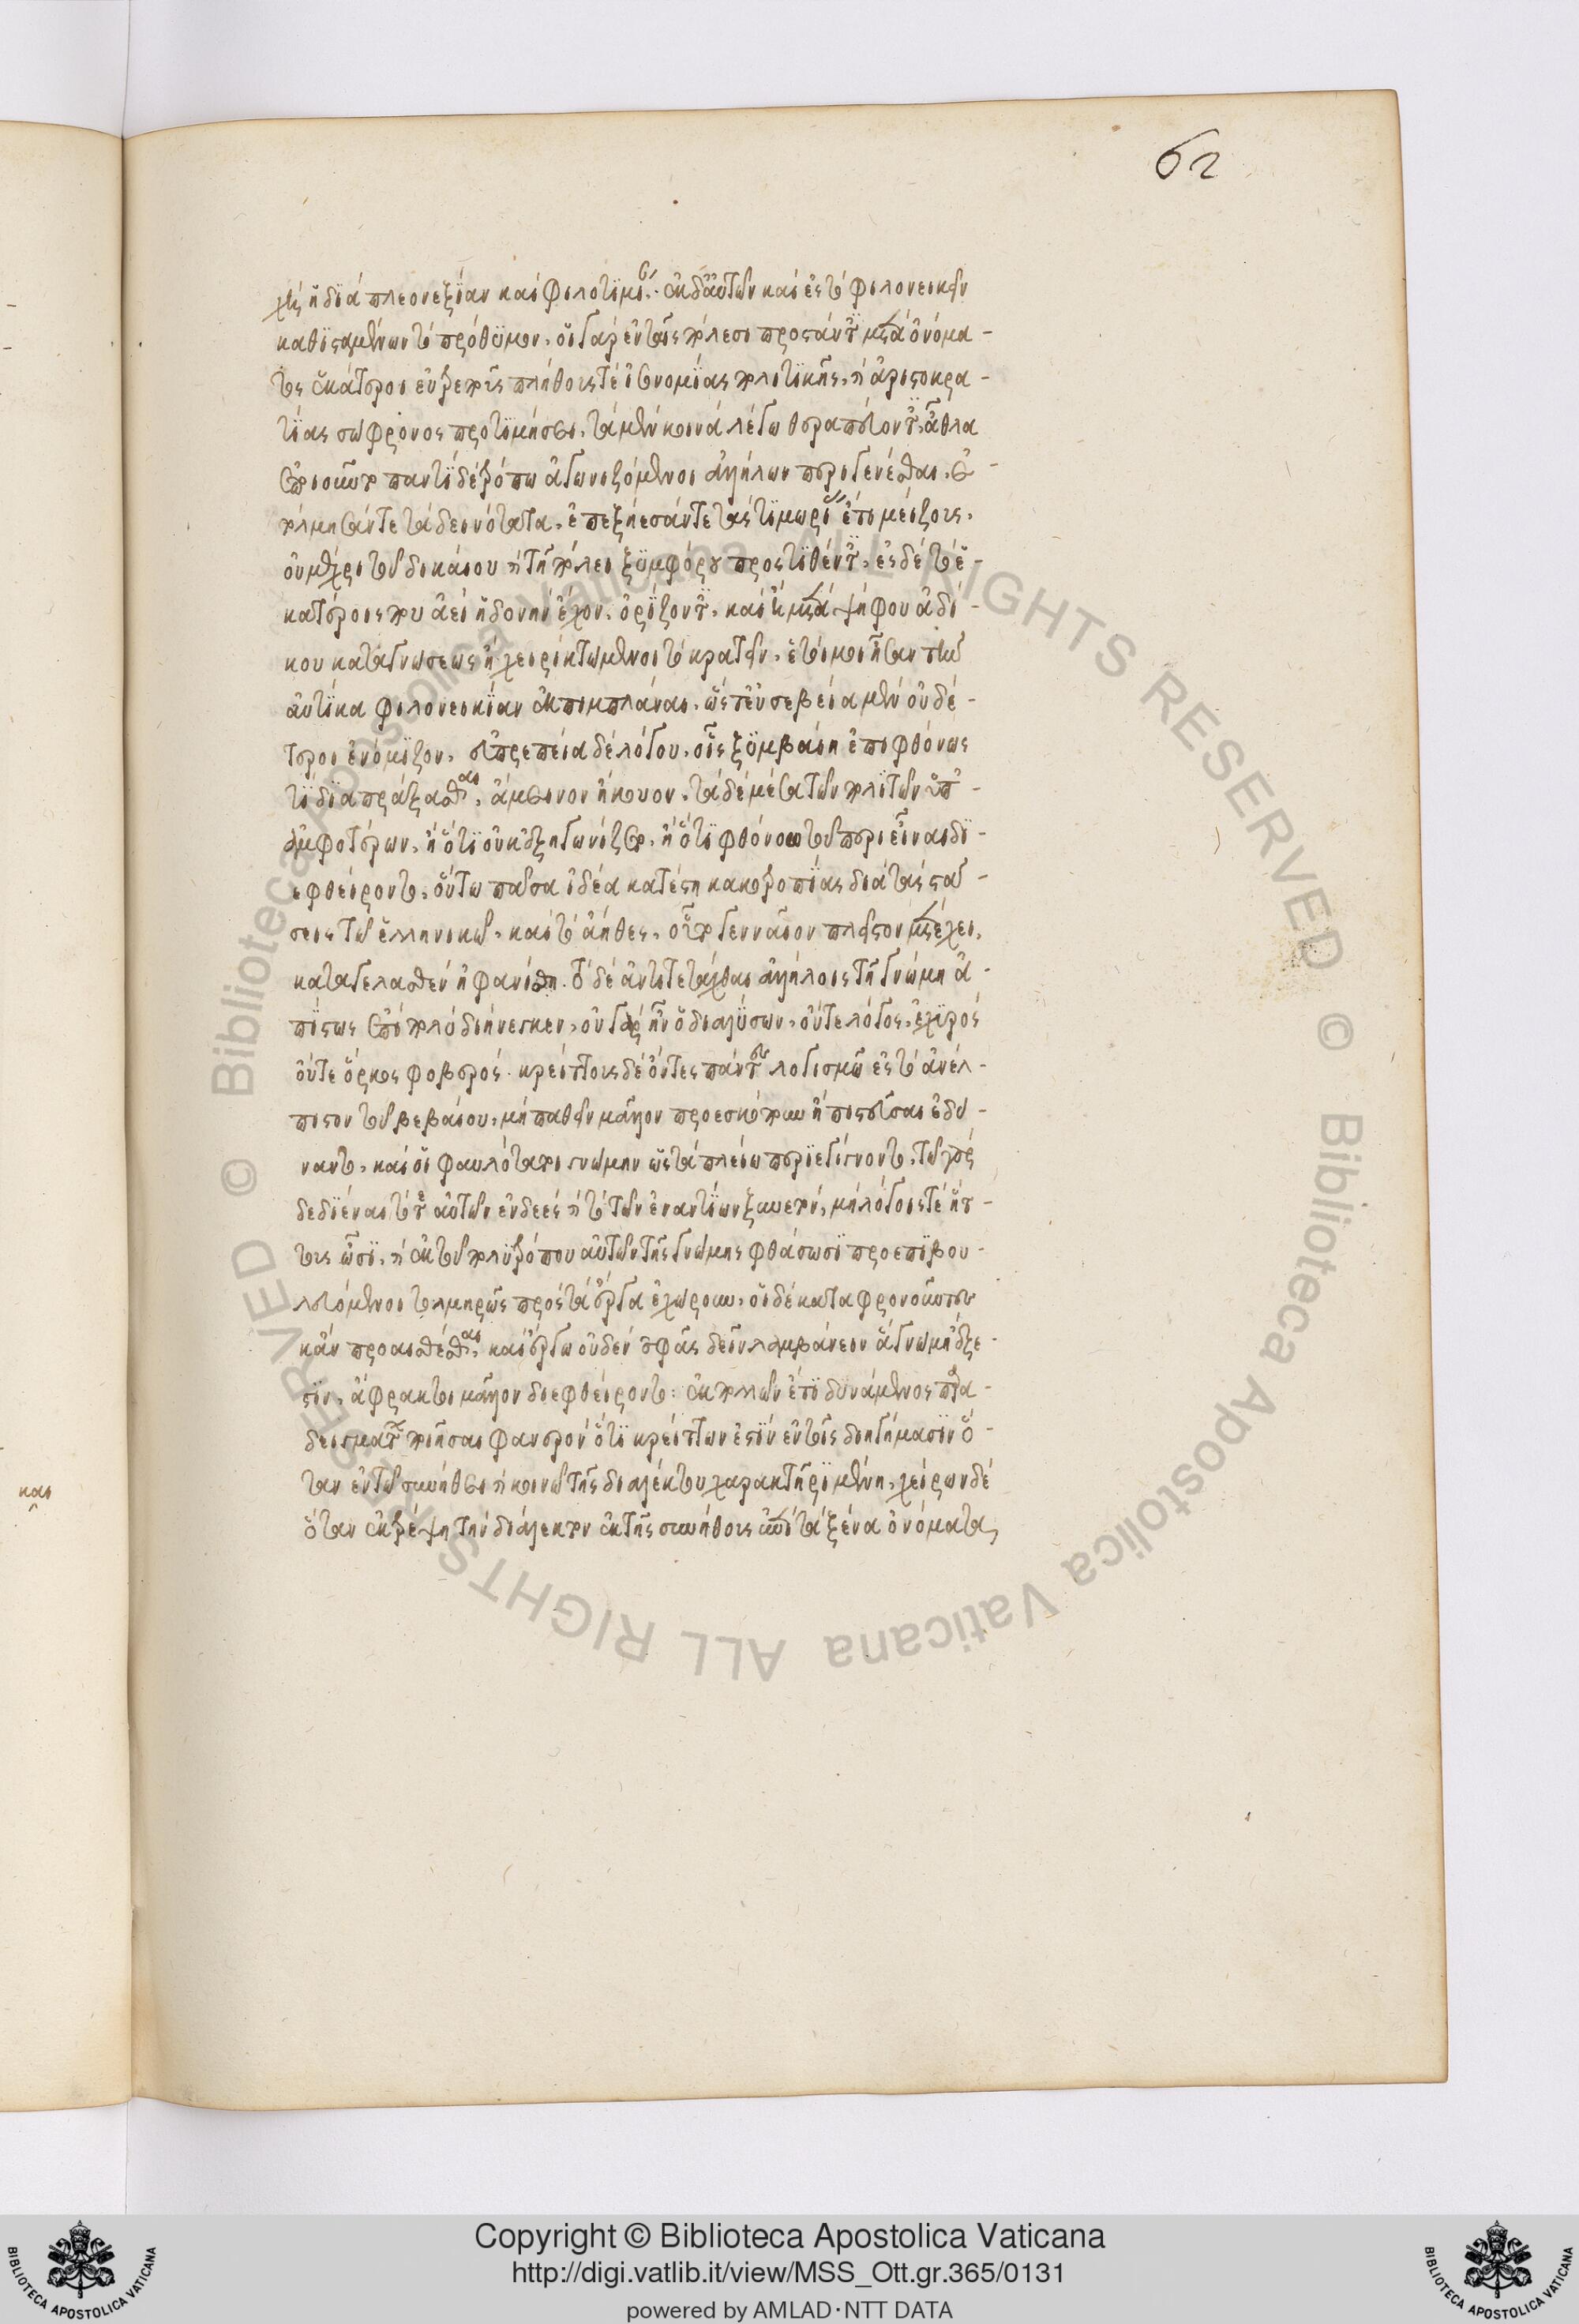 62
χὴ ἡ διὰ πλεονεξίαν καὶ φιλοτιμίαν. ἐκ δ' αὐτῶν καὶ ἐς τὸ φιλονεικεῖν
καθισταμένων τὸ πρόθυμον. οἱ γὰρ ἐν ταῖς πόλεσι προστάντες μετὰ ὀνόμα-
τος ἑκάτεροι εὐπρεποῦς πλήθους τε ἰσονομίας πολιτικῆς, καὶ ἀριστοκρα-
τίας σώφρονος προτιμήσει, τὰ μὲν κοινὰ λόγω θεραπεύοντες, ἆθλα
ἐποιοῦντο παντὶ δὲ τρόπω ἀγωνιζόμενοι ἀλλήλων περιγενέσθαι. ἐ-
τόλμησάν τε τὰ δεινότατα, ἐπεξήεσάν τε τὰς τιμωρίας ἔτι μείζους,
οὐ μέχρι τοῦ δικαίου καὶ τῆ πόλει ξυμφόρου προστιθέντες, ἐς δὲ τὸ ἑ-
κατέροις που ἀεὶ ἡδονὴν ἔχον, ὁρίζοντες, καὶ ἢ μετὰ ψήφου ἀδί-
κου καταγνώσεως ἢ χειρὶ κτώμενοι τὸ κρατεῖν, ἑτοῖμοι ἦσαν τὴν
αὐτίκα φιλονεικίαν ἐκπιμπλάναι, ὥστ' εὐσεβεία μὲν οὐδέ-
τεροι ἐνόμιζον, εὐπρεπεία δὲ λόγου, οἷς ξυμβαίη ἐπιφθόνως
τι διαπράξασθαι, ἄμεινον ἤκουον, τὰ δὲ μέσα τῶν πολιτῶν ὑπ'
ἀμφοτέρων, ἢ ὅτι οὐ ξυνηγωνίζοντο, ἢ ὅτι φθόνω τοῦ περιεῖναι δι-
εφθείροντο, οὕτω πᾶσα ἰδέα κατέστη κακοτροπίας διὰ τὰς στά-
σεις τῶ ἑλληνικῶ, καὶ τὸ εὔηθες, οὗ τὸ γενναῖον πλεῖστον μετέχει,
καταγελασθὲν ἠφανίσθη. τὸ δὲ ἀντιτετάχθαι ἀλλήλοις τῆ γνώμη ἀ-
πίστως ἐπὶ πολὺ διήνεγκεν, οὐ γὰρ ἦν ὁ διαλύσων, οὔτε λόγος ἐχυρὸς
οὔτε ὅρκος φοβερός. κρείττους δὲ ὄντες πάντες λογισμῶ ἐς τὸ ἀνέλ-
πιστον τοῦ βεβαίου, μὴ παθεῖν μᾶλλον προεσκόπουν ἢ πιστεῦσαι ἐδύ-
ναντο, καὶ οἱ φαυλότεροι γνώμην ὡς τὰ πλείω περιεγίγνοντο, τῶ γὰρ
δεδιέναι τό τε αὐτῶν ἐνδεὲς καὶ τὸ τῶν ἐναντίων ξυνετὸν, μὴ λόγοις τε ἥτ-
τους ὦσι, καὶ ἐκ τοῦ πολυτρόπου αὐτῶν τῆς γνώμης φθάσωσι προεπιβου-
λευόμενοι τολμηρῶς πρὸς τὰ ἔργα ἐχώρουν, οἱ δὲ καταφρονοῦντες
κἂν προαισθέσθαι, καὶ ἔργω οὐδὲν σφᾶς δεῖν λαμβάνειν ἃ γνώμη ἔξε-
στιν, ἄφρακτοι μᾶλλον διεφθείροντο: ἐκ πολλῶν ἔτι δυνάμενος παρα-
δείγματα ποιῆσαι φανερὸν ὅτι κρείττων ἐστὶν ἐν τοῖς διηγήμασιν ὅ-
ταν ἐν τῶ συνήθει καὶ κοινῶ τῆς διαλέκτου χαρακτῆρι μένη, χείρων δὲ
ὅταν ἐκτρέψη τὴν διάλεκτον ἐκ τῆς συνήθους ἐπὶ τὰ ξένα ὀνόματα,
και
Copyright © Biblioteca Apostolica Vaticana
http://digi.vatlib.it/view/MSS_Ott.gr.365/0131
powered by AMLAD·NTT DATA